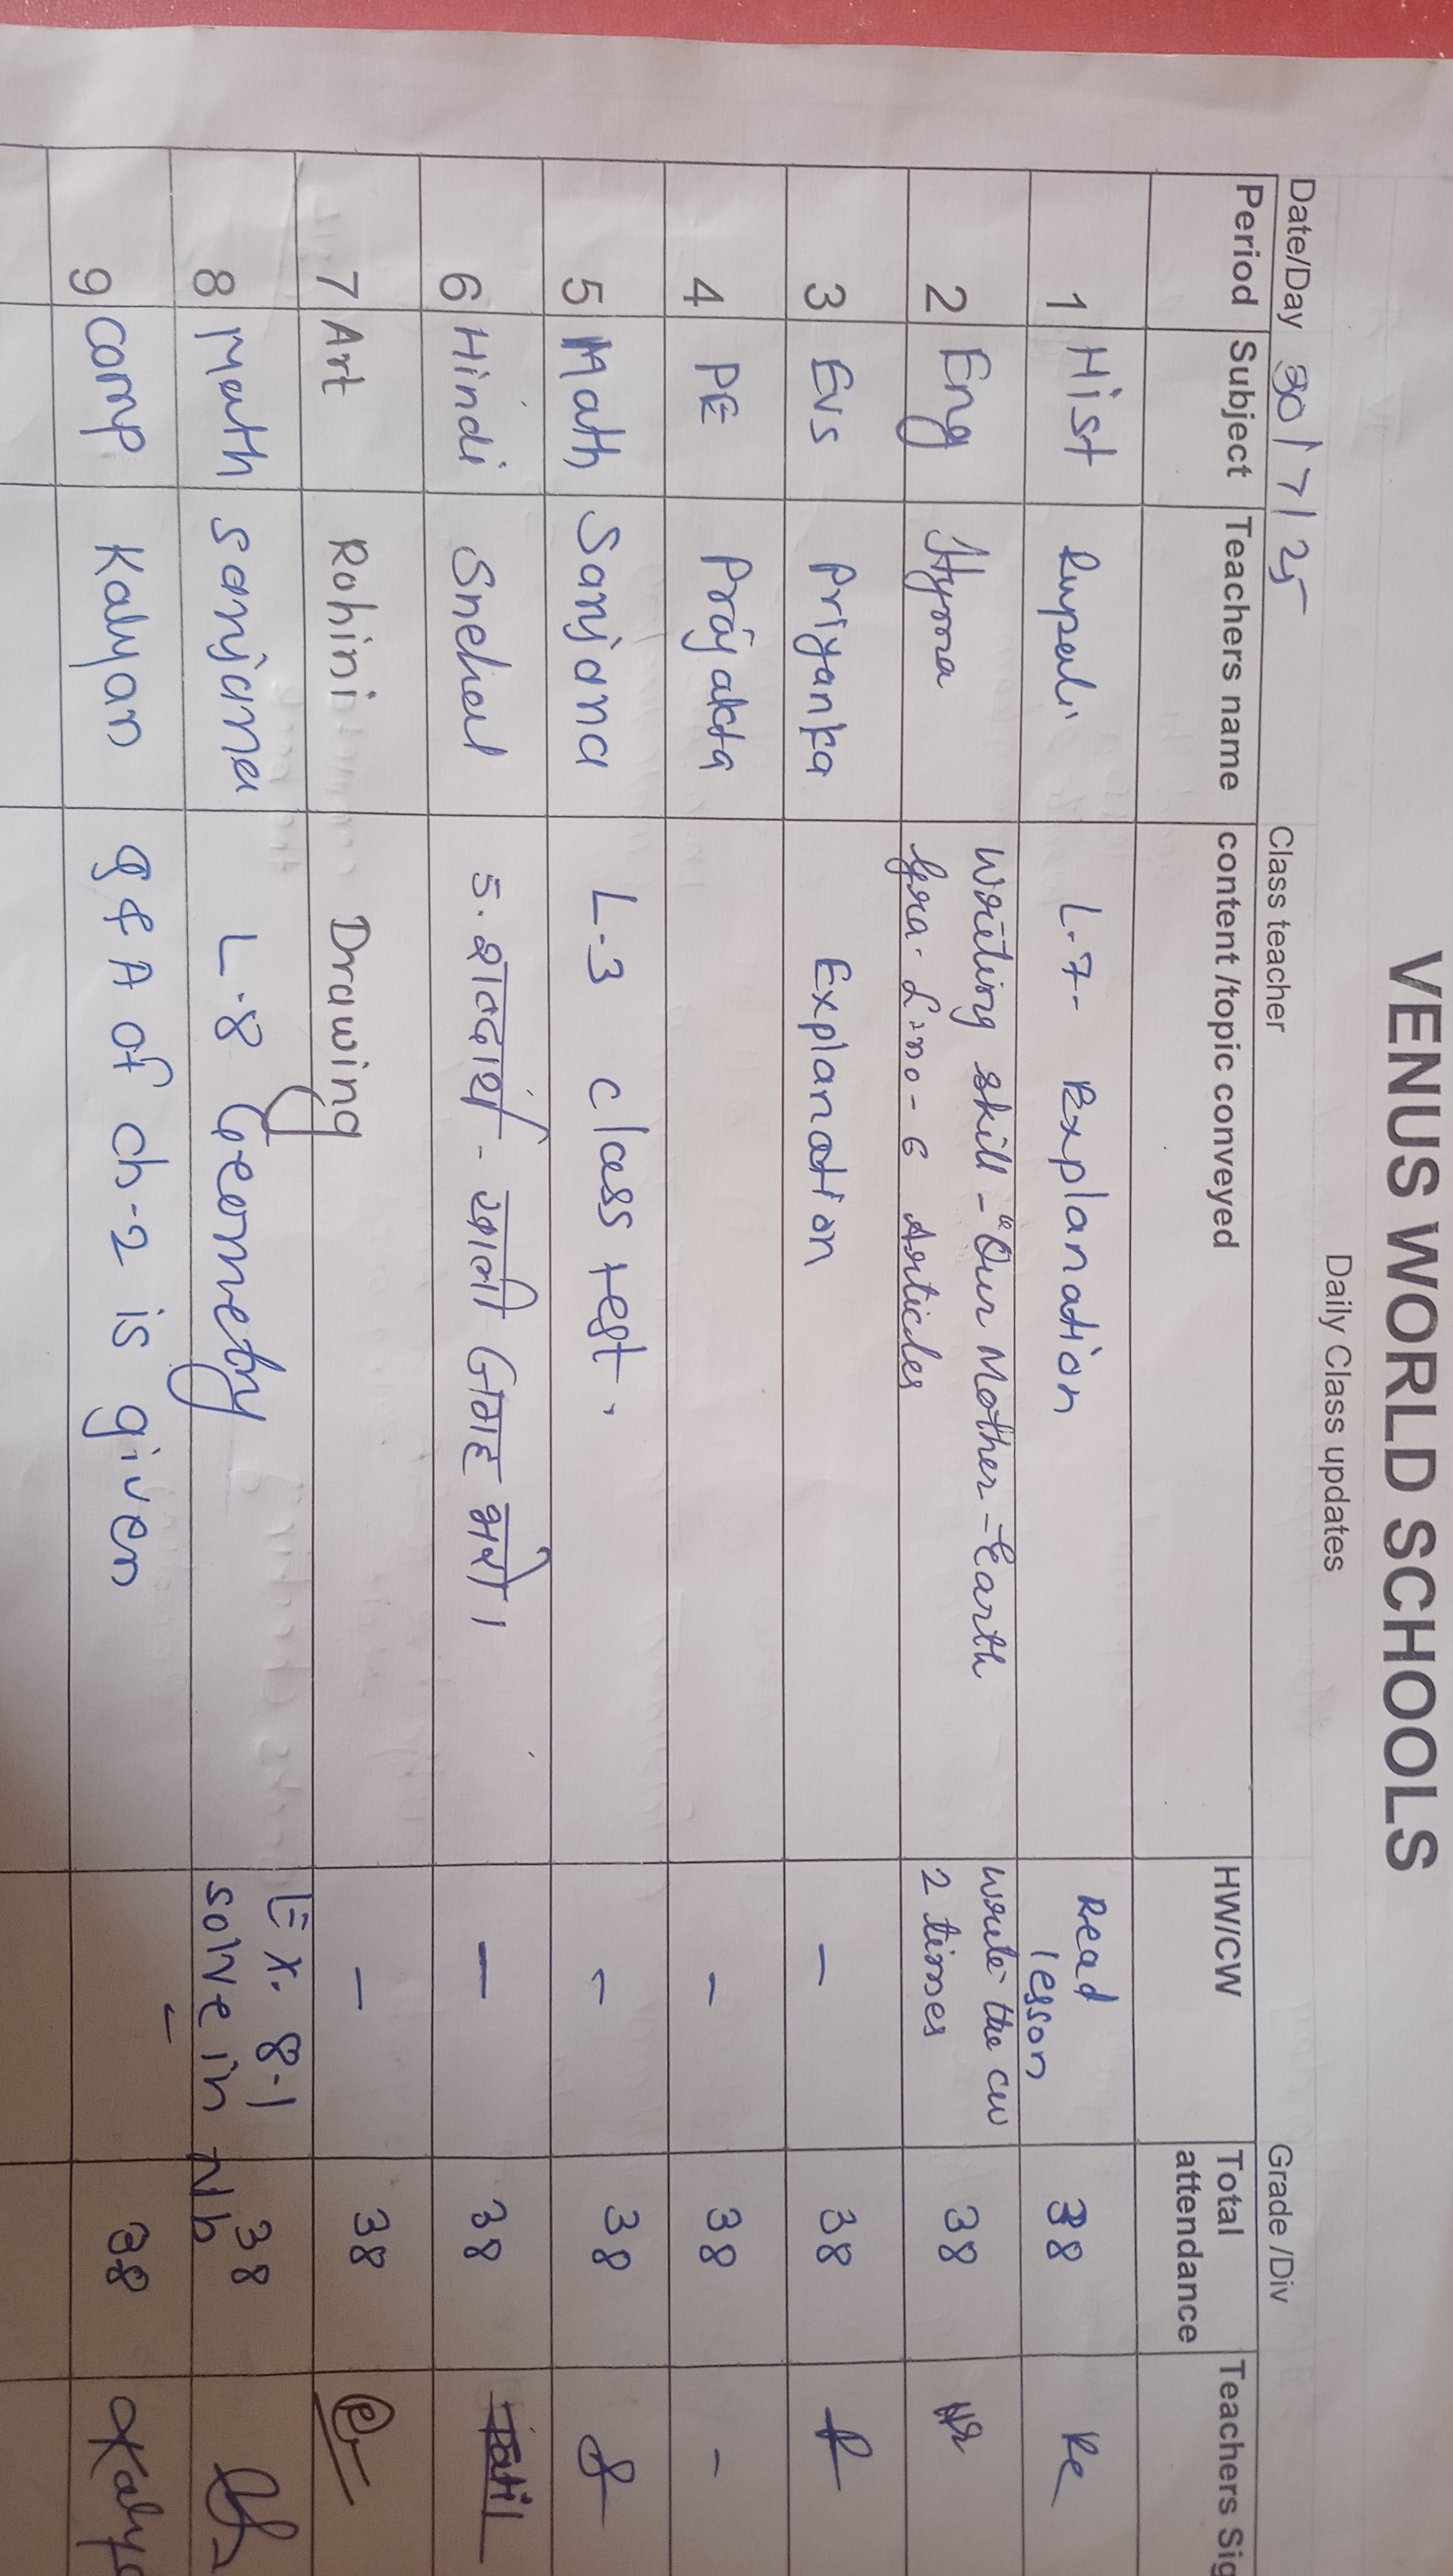 VENUS WORLD SCHOOLS
Daily Class updates
Date/Day 30/7/25 Class teacher Grade /Div
Period Subject Teachers name content /topic conveyed HW/CW Total attendance Teachers Sig
1 Hist Rupali L.7- Explanation Read lesson 38
2 Eng Hyma Writing skill - "Our Mother - Earth write the cw 38
Gra. L.no - 6 Articles 2 times
3 Evs Priyanka Explanation - 38
4 PE Prajakta - 38 -
5 Math Sanjana L.3 class test. - 38
6 Hindi Snehal 5. शब्दार्थ - खाली जगह भरो। - 38 Patil
7 Art Rohini Drawing - 38
8 Math sanjana L.8 Geometry Ex. 8.1 38
solve in Nb
9 comp Kalyan Q & A of ch-2 is given - 38